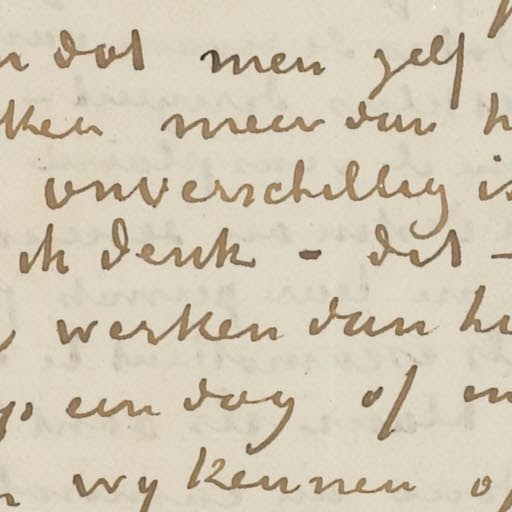 dat men zelf
ken meer dan h
onverschillig is
ik denk - dit -
werken dan h
op een dag of
wy kennen of